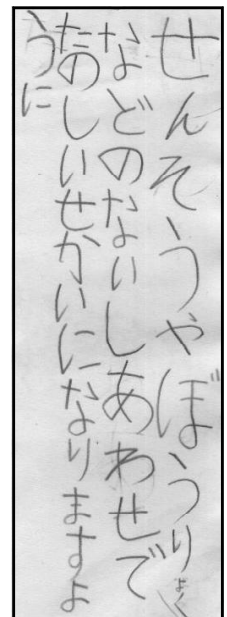 せんそうやぼうりょく
などのないしあわせで
たのしいせかいになりますよ
うに